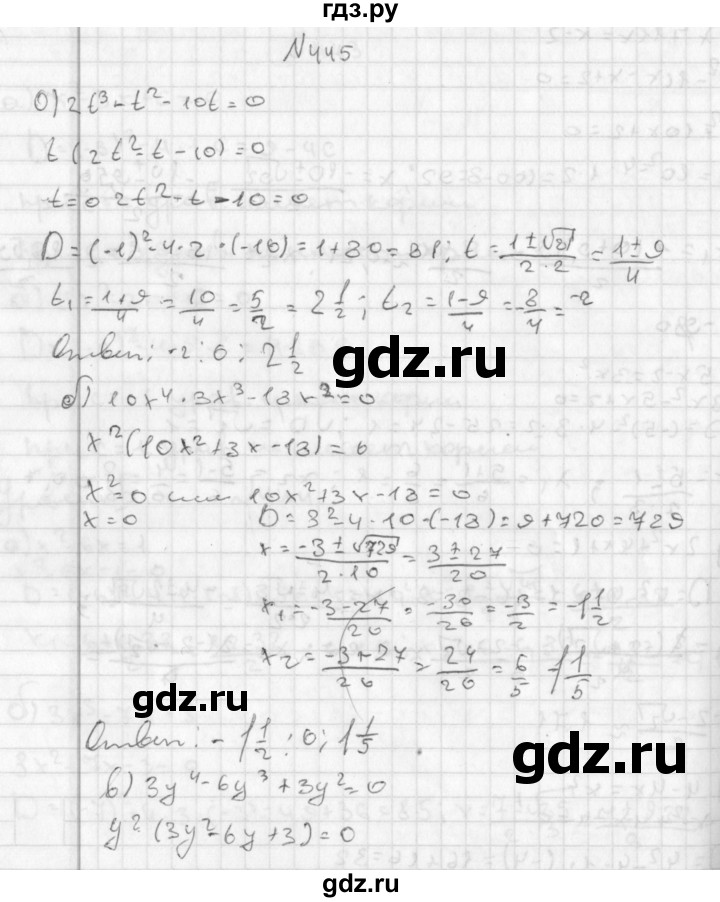 гдз.ру
N445
а) 2t³ - t² - 10t = 0
t(2t² - t - 10) = 0
t = 0 2t² - t - 10 = 0
D = (-1)² - 4·2·(-10) = 1 + 80 = 81; t = (1 ± √81)/(2·2) = (1 ± 9)/4
t₁ = (1+9)/4 = 10/4 = 5/2 = 2 1/2; t₂ = (1-9)/4 = -8/4 = -2
Ответ: -2; 0; 2 1/2
gdz.ru
б) 10x⁴ · 3x³ - 18x² = 0
x²(10x² + 3x - 18) = 0
x² = 0 или 10x² + 3x - 18 = 0
x = 0 D = 3² - 4·10·(-18) = 9 + 720 = 729
x = (-3 ± √729)/(2·10) = (3 ± 27)/20
x₁ = (-3-27)/20 = -30/20 = -3/2 = -1 1/2
x₂ = (-3+27)/20 = 24/20 = 6/5 = 1 1/5
gdz.ru
Ответ: -1 1/2; 0; 1 1/5
gdz.ru
в) 3y⁴ - 6y³ + 3y² = 0
y²(3y² - 6y + 3) = 0
gdz.ru